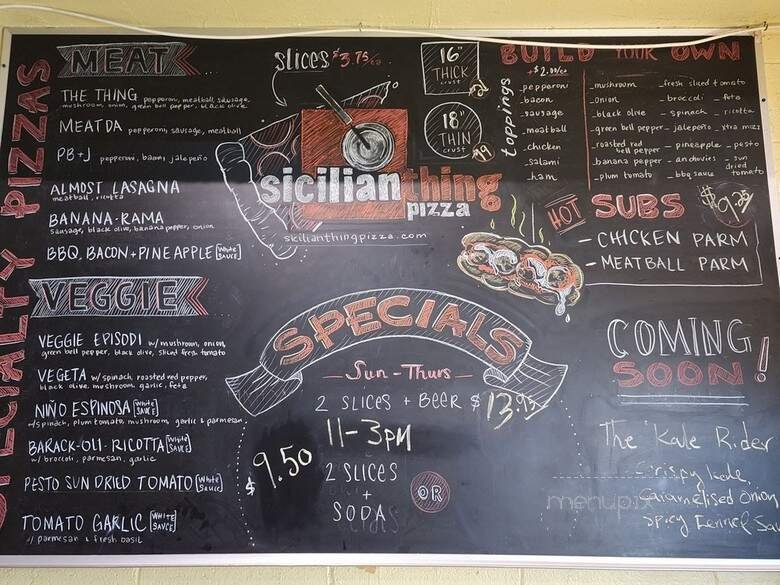 SPECIALTY PIZZAS
MEAT
THE THING pepperoni, meatball, sausage,
mushroom, onion, green bell pepper, black olive
MEATDA pepperoni, sausage, meatball
PB+J pepperoni, bacon, jalapeño
ALMOST LASAGNA
meatball, ricotta
BANANA-RAMA
sausage, black olive, banana pepper, onion
BBQ, BACON + PINEAPPLE [White SAUCE]
VEGGIE
VEGGIE EPISODI w/ mushroom, onion,
green bell pepper, black olive, sliced fresh tomato
VEGETA w/ spinach, roasted red pepper,
black olive, mushroom, garlic, feta
NIÑO ESPINOSA [White SAUCE]
w/ spinach, plum tomato, mushroom, garlic & parmesan
BARACK-OLI-RICOTTA [White SAUCE]
w/ broccoli, parmesan, garlic
PESTO SUN DRIED TOMATO [White Sauce]
TOMATO GARLIC [WHITE SAUCE]
w/ parmesan & fresh basil
slices $3.75/ea
16"
THICK
crust
18"
THIN
crust
sicilian thing
pizza
sicilianthingpizza.com
BUILD YOUR OWN
+$2.00/ea
toppings
-pepperoni
-bacon
-sausage
-meatball
-chicken
-salami
-ham
-mushroom
-onion
-black olive
-green bell pepper
-roasted red bell pepper
-banana pepper
-plum tomato
-fresh sliced tomato
-broccoli -feta
-spinach -ricotta
-jalapeño -xtra mozz
-pineapple -pesto
-anchovies -sun dried tomato
-bbq sauce
HOT SUBS $9.25
- CHICKEN PARM
- MEATBALL PARM
SPECIALS
- Sun - Thurs -
2 SLICES + BEER $13.95
11-3PM
$9.50
2 SLICES
+
SODA
OR
COMING
SOON!
The Kale Rider
Crispy kale,
Caramelised Onion
Spicy Fennel
menupix